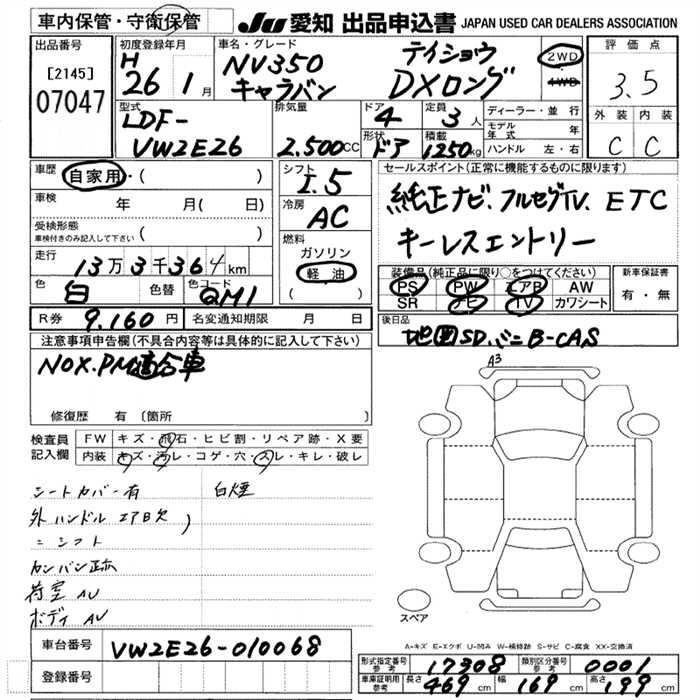 車内保管・守衛保管
JU 愛知 出品申込書 JAPAN USED CAR DEALERS ASSOCIATION
出品番号
[2145]
07047
初度登録年月
H 26 1月
車名・グレード
NV350 テイショウ
キャラバン DXロング
2WD
4WD
評価点
3.5
外装 内装
C C
型式
LDF-
VW2E26
排気量
2.500CC
ドア
4
定員
3人
形状
ドア
積載
1250kg
ディーラー・並行
モデル年式 年
ハンドル 左・右
車歴
自家用・( )
車検 年 月( 日)
受検形態
車検付きのみ記入して下さい ( )
走行
13万3千364km
色
白
色替
色コード
QM1
シフト
I.5
冷房
AC
燃料
ガソリン
軽油
( )
セールスポイント(正常に機能するものに限ります)
純正ナビ.フルセグTV. ETC
キーレスエントリー
装備品(純正品に限り○をつけてください)
PS PW エアB AW
SR ナビ TV カワシート
新車保証書
有・無
R券 9.160円 名変通知期限 月 日
後日品
地図SD.ミニB-CAS
注意事項申告欄(不具合内容等は具体的に記入して下さい)
NOX.PM適合車
修復歴 有 〔箇所 〕
検査員記入欄
FW キズ・飛石・ヒビ割・リペア跡・X要
内装 キズ・汚レ・コゲ・穴・スレ・キレ・破レ
シートカバー有 白煙
外ハンドル エアB欠
〃 シフト
カンバン跡
荷室 AU
ボディ AU
A3
スペア
A-キズ E-エクボ U-凹み W-補修跡 S-サビ C-腐食 XX-交換済
車台番号 VW2E26-010068
登録番号
形式指定番号参考 17308 類別区分番号参考 0001
車庫証明用参考 長さ 469cm 幅 169cm 高さ 199cm